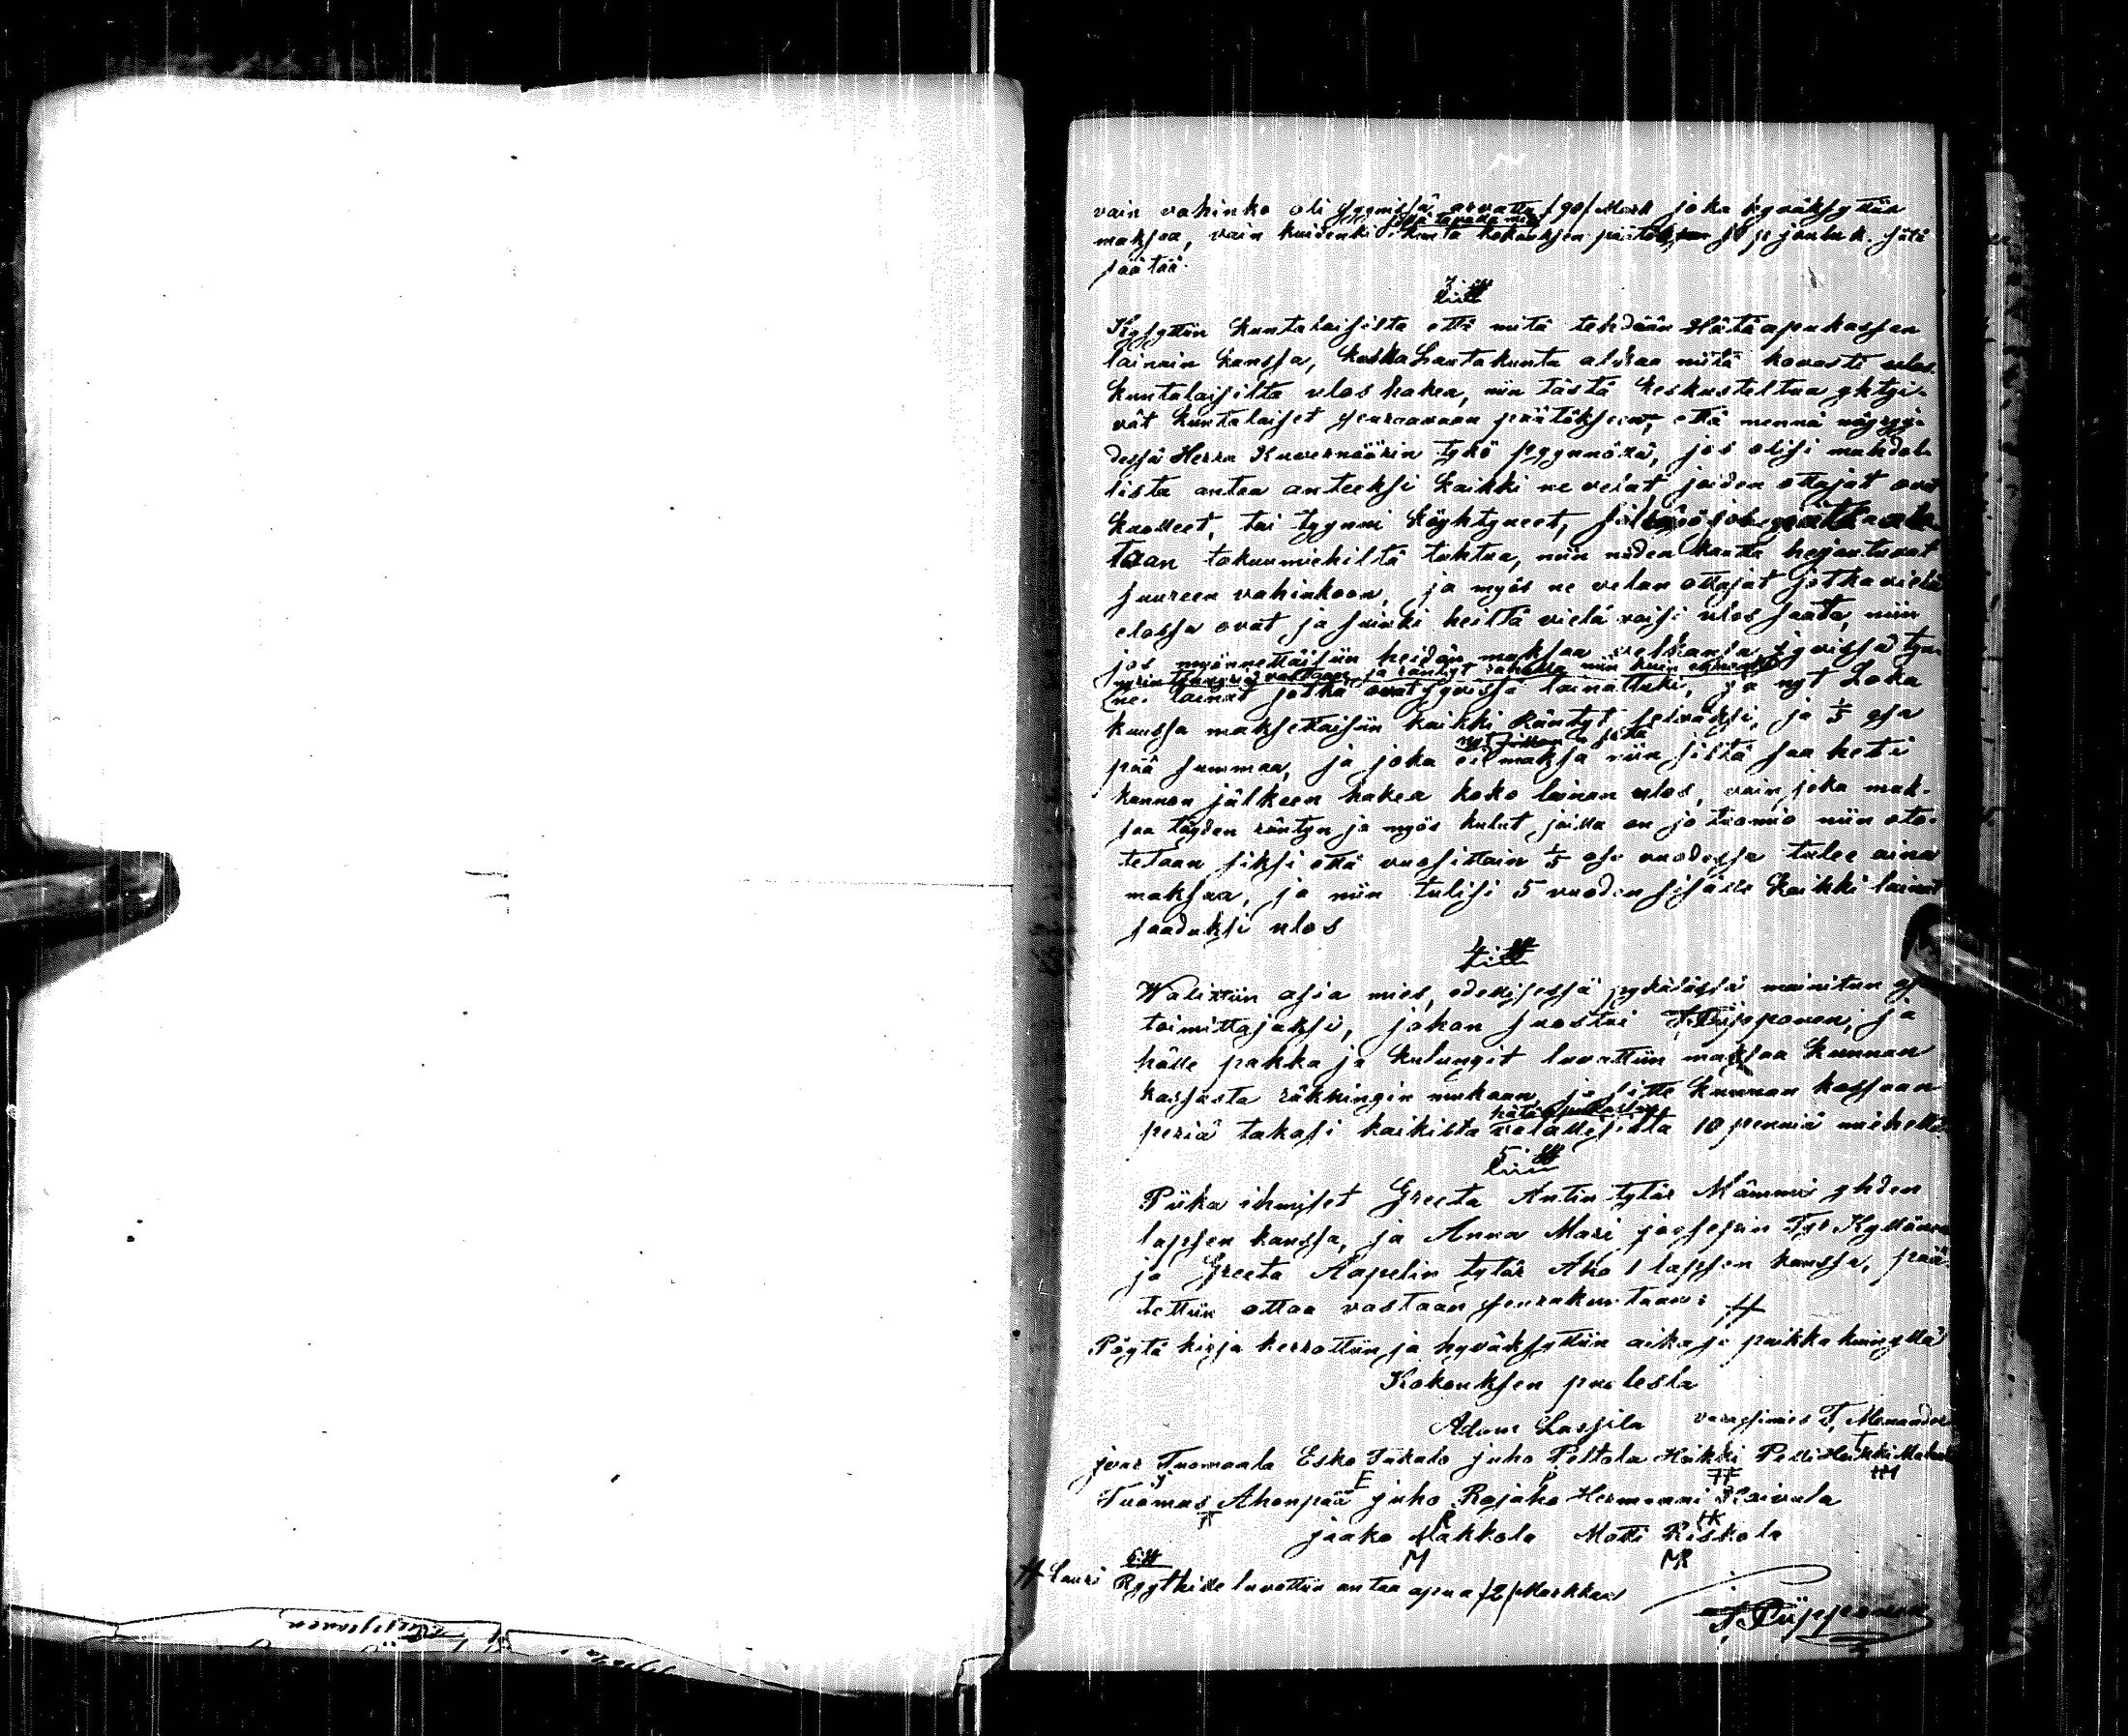 vain vahinko oli syynissä arvattu /90/ Mark joka hyväksyttiin
maksaa, vain kuidenki kunta kokouksen jouluk. jäti
säätää.
3 §
Kysyttiin kuntalaisilta että mitä tehdään Hätäapukassan
lainain kanssa, koska Lautakunta alkaa niitä kovasti ulos
kuntalaisilta ulos hakea, niin tästä keskusteltua yhtyi-
vät kuntalaiset seuraavaan päätökseen, että mennä nöyryy-
dessä Herra Kuvernöörin tykö pyynnöllä, jos olisi mahdol-
lista antaa anteeksi kaikki ne velat, joiden ottajat ovat
kuolleet, tai tyynni köyhtyneet, sillä jos
taan takuumiehiltä tahtoa, niin niiden kautta hejantuvat
suureen vahinkoon, ja myös ne velan ottajat jotka vielä
elossa ovat ja heiltä vielä voisi ulos saada, niin
jos myönnettäisiin heidän maksaa velkansa jyvissä
ja räntyt rahalla niin kuin
ne lainat jotka ovat jyvissä lainattuki, ja nyt Loka
kuussa maksettaisiin kaikki Räntyt selväksi, ja 1/5 osa
pää summaa, ja joka ei nyt maksa niin siltä saa heti
kannon jälkeen hakea koko lainan ulos, vain joka mak-
saa täyden räntyn ja myös kulut joilla on jo tuomio niin ote-
tetaan siksi että vuosittain 1/5 osa vuodessa tulee aina
maksaa, ja niin tulisi 5 vuoden sisään kaikki lainat
saaduksi ulos
4 §
Walittiin asia mies, edellisessä pykälässä mainitun
toimittajaksi, johon suostui T. Piipponen, ja
hälle palkka ja kulungit luvattiin maksaa kunnan
kassasta räkningin mukaan, ja sitte kunnan kassaan
periä takasi kaikista hätäapukassan velallisilta 10 penniä mieheltä
5 §
Piika ihmiset Greeta Antin tytär Mämmi yhden
lapsen kanssa, ja Anna Mari joosepin Tyt Kyllönen
ja Greeta Aapelin tytär Aho 1 lapsen kanssa, pää-
tettiin ottaa vastaan seurakuntaan: #
Pöytä kirja kerrottiin ja hyväksyttiin aika ja paikka kuin yllä
Kokouksen puolesta
Adam Lassila varaesimies T. Menander
ivar Tuomaala Esko Jukalo juho Peltola Heikki Pelli Heikki
Tuomas Ahonpää juho Rajaho Hermanni Kaivola
jaako Mäkkola Matti Riskola
6 §
# Lauri Ryythille luvattiin antaa apua /2/ Markkaa
T. Piipponen